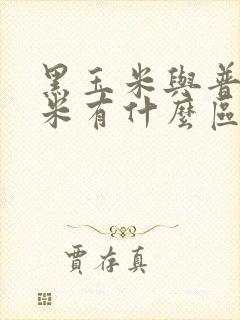 黑玉米與普
米有什麼區
賈存真